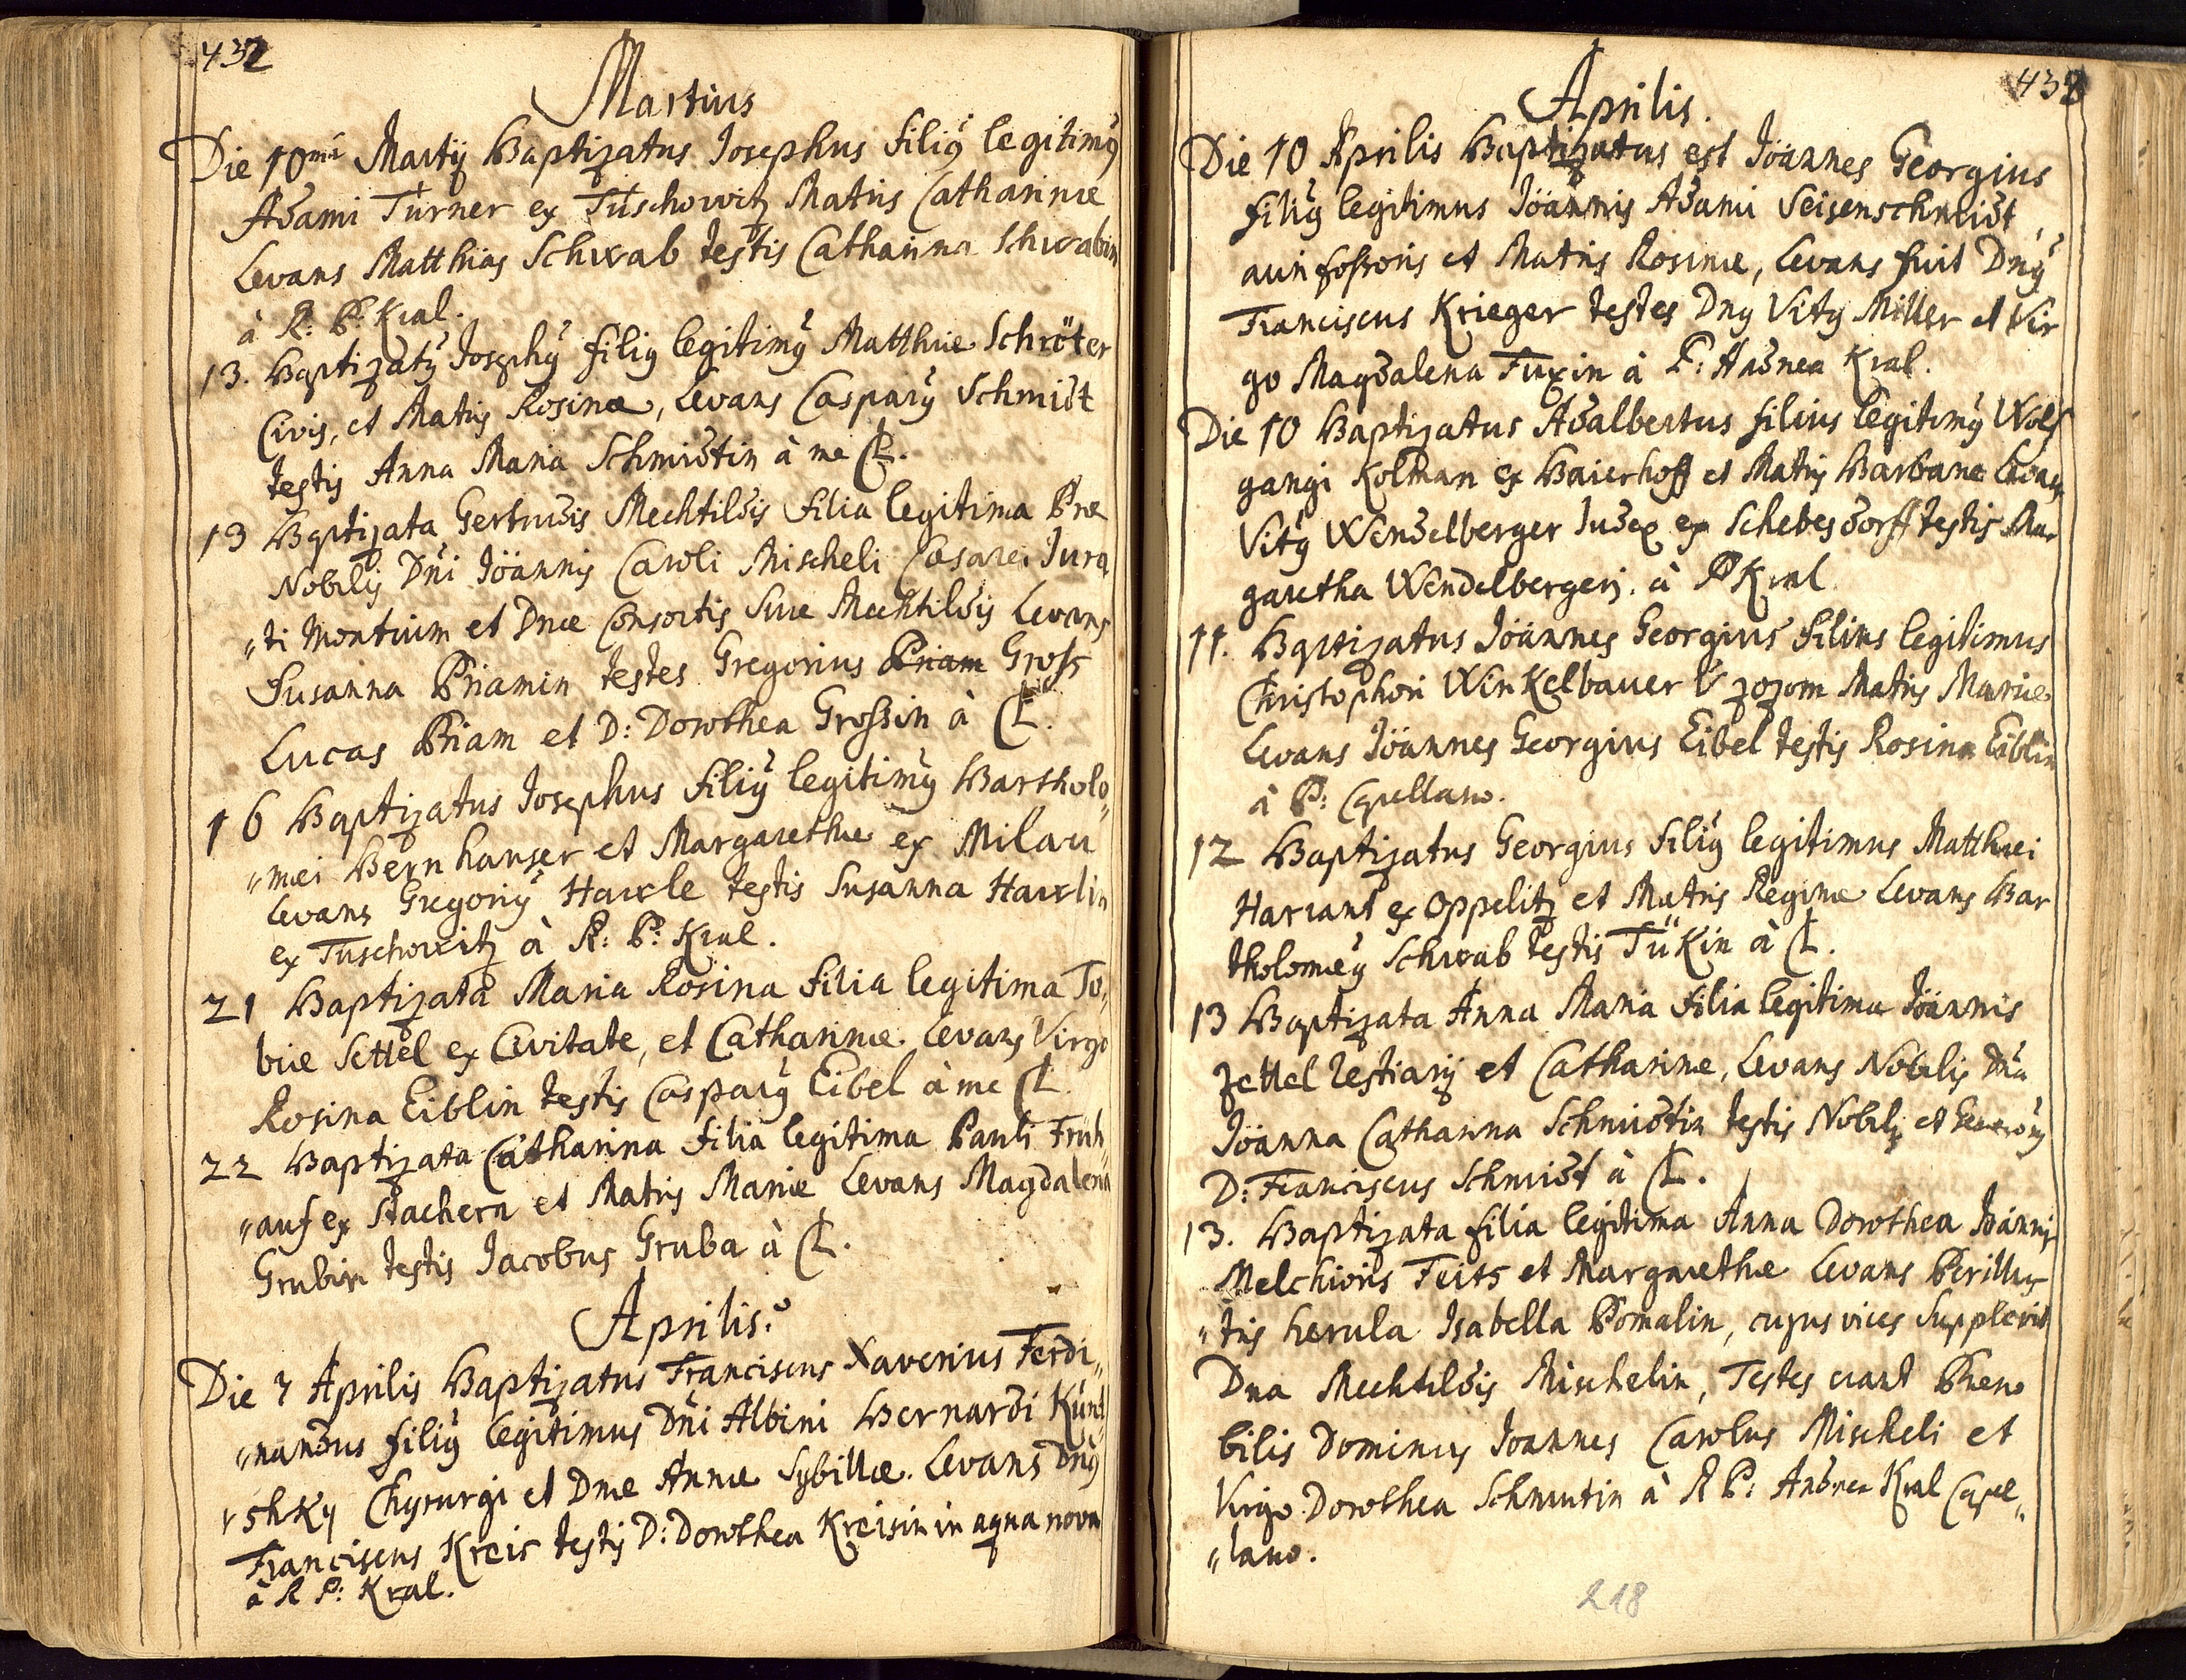 432
Martius
Die 10ma Martÿ Baptizatus Josephus filiꝰ legitimꝰ
Adami Türner ex Tüschowitz Matris Catharinæ
Levans Matthias Schwab testis Catharina Schwabin
à R: P: Kral.
13. Baptizatꝰ Josephꝰ filiꝰ legitimꝰ Matthiæ Schröter
Civis, et Matris Rosinæ, Levans Casparꝰ Schmidt
testis Anna Maria Schmidtin à me CL.
13 Baptizata Gertrudis Mechtildis filia legitima Præ
Nobilis Dni Joannis Caroli Mischeli Cæsarei Jura
„ti Montium et Dnæ Consortis Suæ Mechtildis Levans
Susanna Priamin testes Gregorius Priam Gross
Lucas Priam et D: Dorothea Grossin à CL.
16 Baptizatus Josephus filiꝰ legitimꝰ Bartholo„
„mæi Bernhauser et Margarethæ ex Milau
Levans Gregoriꝰ Hawle testis Susanna Hawlin
ex Tuschowitz à R: P: Kral.
21 Baptizata Maria Rosina filia legitima To„
biæ Settel ex Civitate, et Catharinæ Levans Virgo
Rosina Eiblin testis Casparꝰ Eibel à me CL
22 Baptizata Catharina filia legitima Pauli Früh„
„auf ex Stachern et Matris Mariæ Levans Magdalena
Grubin testis Jacobus Gruba à CL.
Aprilis.
Die 7 Aprilis Baptizatus Franciscus Xaverius Ferdi„
„nandus filiꝰ legitimus Dni Albini Bernardi
Chyrurgi et Dnæ Annæ Sybillæ. Levans Dnꝰ
Franciscus Kreis testis D: Dorothea Kreisin in aqua nova
à R P: Kral.
Aprilis.
Die 10 Aprilis Baptizatus est Joannes Georgius
filiꝰ legitimus Joannis Adami Seisenschmidt,
auri fossoris et Matris Rosinæ, Levans fuit Dnꝰ
Franciscus Krieger testes Dnꝰ Vitꝰ Miller et Vir
go Magdalena Fuxin à P: Andrea Kral.
Die 10 Baptizatus Adalbertus filius legitimꝰ Wolf
gangi Kolman ex Baierhoff et Matris Barbaræ Levans
Vitꝰ Wendelberger Judex ex Schebesdorff testis Mar
garetha Wendelbergeri. à P Kral
11. Baptizatus Joannes Georgius filius legitimus
Christophori Winkelbauer Matris Mariæ
Levans Joannes Georgius Eibel testis Rosina Eiblin
à P: Capellano.
12 Baptizatus Georgius filiꝰ legitimus Matthæi
Harrant ex Oppelitz et Matris Reginæ Levans Bar
tholomæꝰ Schwab testis Tükin à CL.
13 Baptizata Anna Maria filia legitima Joannis
Zettel Restiarÿ et Catharinæ, Levans Nobilis Dna
Joanna Catharina Schmidtin testis Nobilis et Generosꝰ
D: Franciscus Schmidt à CL.
13. Baptizata filia legitima Anna Dorothea Joannis
Melchioris Feits et Margarethæ Levans Perillus
„tris herula Isabella Pomalin, cujus vices Supplevit
Dna Mechtildis Mischelin, Testes erant Præno
bilis Dominus Joannes Carolus Mischeli et
Virgo Dorothea Schmutin à R P: Andrea Kral Capel„
„lano.
218